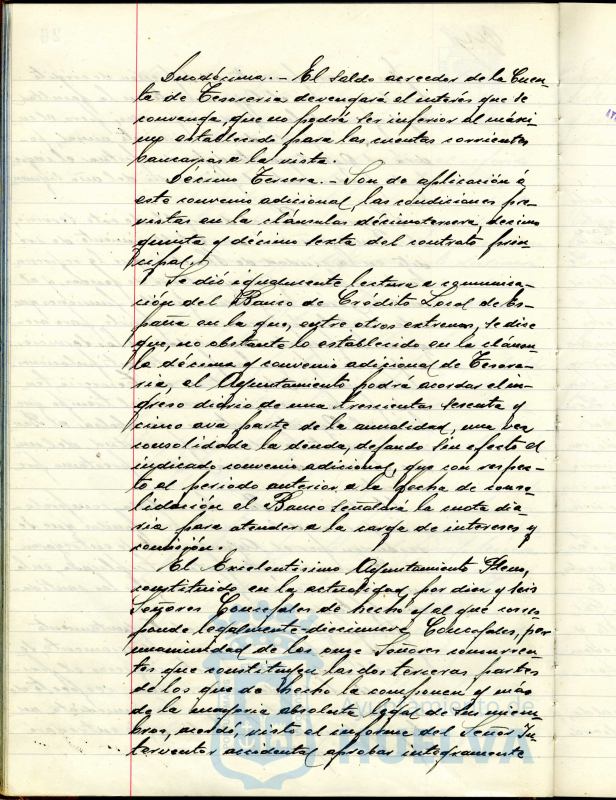 Duodécima.- El saldo acreedor de la Cuen-
ta de Tesorería devengará el interés que se
convenga, que no podrá ser inferior al máxi-
mo establecido para las cuentas corrientes
bancarias a la vista.
Décimo Tercera.- Son de aplicación á
este convenio adicional, las condiciones pre-
vistas en la cláusulas décimotercera, decimo
quinta y décimo sexta del contrato prin-
cipal.
Se dió igualmente lectura a comunica-
ción del Banco de Crédito Local de Es-
paña en la que, entre otros extremos, se dice
que, no obstante lo establecido en la cláusu-
la décima y convenio adicional de Tesore-
ria, el Ayuntamiento podrá acordar el in-
greso diario de una trescientas sesenta y
cinco ava parte de la anualidad, una vez
consolidada la deuda, dejando sin efecto el
indicado convenio adicional, que con respec-
to al periodo anterior a la fecha de conso-
lidación el Banco señalará la cuota dia-
ria para atender a la carga de intereses y
comisión.
El Excelentísimo Ayuntamiento Pleno,
constituido en la actualidad por diez y seis
Señores Concejales de hecho y al que corres-
ponde legalmente diecinueve Concejales, por
unanimidad de los once Señores concurren-
tes que constituyen las dos terceras partes
de los que de hecho la componen y más
de la mayoria absoluta legal de sus miem-
bros, acordó, visto el informe del Señor In-
terventor accidental aprobar integramente
Ayuntamiento de
HUELVA